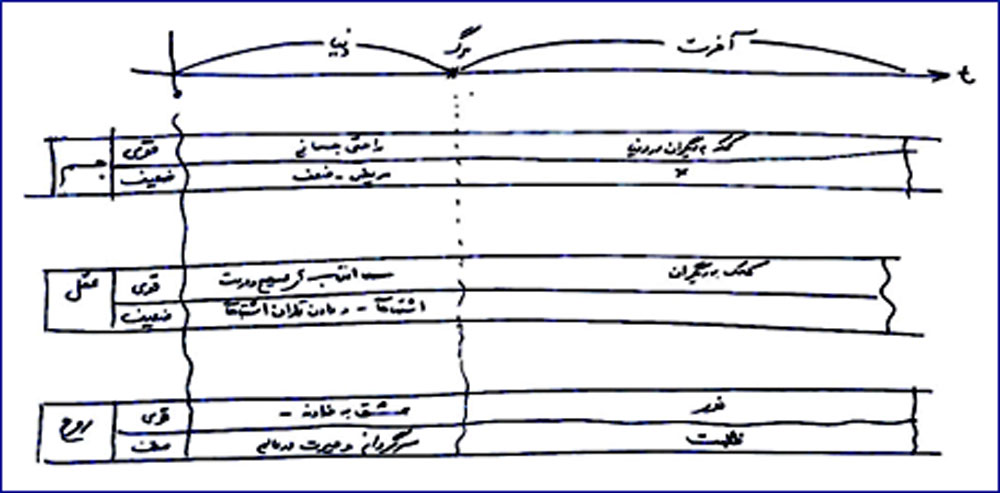 دنیا مرگ آخرت t
جسم قوی راحتی جسمانی کمک به دیگران در دنیا
ضعیف مریض - ضعف ×
عقل قوی انتخاب های صحیح و درست کمک به دیگران
ضعیف اشتباهات - و تاوان اشتباهات
روح قوی عشق به خداوند - نور
ضعف سرگردانی و حیرت در عالم ظلمت